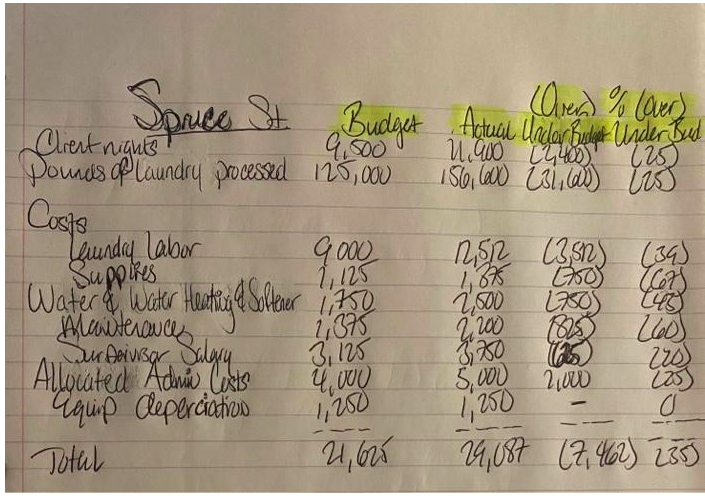 (Over) % (over)
Spruce St. Budget Actual Under Budget Under Bud
Client nights 9,500 11,900 (2,400) (25)
Pounds of Laundry processed 125,000 156,600 (31,600) (25)
Costs
Laundry Labor 9000 12,512 (3,512) (39)
Supplies 1,125 1,875 (750) (67)
Water & Water Heating & Softener 1,750 2,500 (750) (43)
Maintenance 1,375 2,200 (825) (60)
Supervisor Salary 3,125 3,750 (20)
Allocated Admin Costs 4,000 5,000 2,000 (25)
Equip deperciation 1,250 1,250 - 0
Total 21,625 29,087 (7,462) (35)